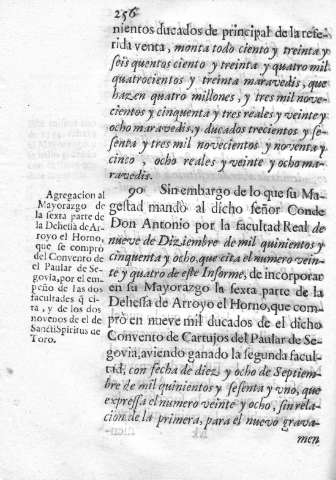 256
nientos ducados de principal de la refe-
rida venta, monta todo ciento y treinta y
seis quentos ciento y treinta y quatro mil
quatrocientos y treinta maravedis, que
hazen quatro millones, y tres mil nove-
cientos y cinquenta y tres reales y veinte y
ocho maravedis, y ducados trecientos y se-
senta y tres mil novecientos y noventa y
cinco, ocho reales y veinte y ocho ma-
ravedis.
90 Sin embargo de lo que su Ma-
gestad mandò al dicho señor Conde
Don Antonio por la facultad Real de
nueve de Diziembre de mil quinientos y
cinquenta y ocho, que cita el numero vein-
te y quatro de este Informe, de incorporar
en su Mayorazgo la sexta parte de la
Dehessa de Arroyo el Horno, que com-
prò en nueve mil ducados de el dicho
Convento de Cartujos del Paular de Se-
govia, aviendo ganado la segunda facul-
tad, con fecha de diez y ocho de Septiem-
bre de mil quinientos y sesenta y uno, que
expressa el numero veinte y ocho, sin rela-
cion de la primera, para el nuevo grava-
men
Agregacion al
Mayorazgo de
la sexta parte de
la Dehesa de Ar-
royo el Horno,
que se comprò
del Convento de
el Paular de Se-
govia, por el em-
peño de las dos
facultades q̃ ci-
ta, y de los dos
novenos de el de
Sancti Spiritus de
Toro.